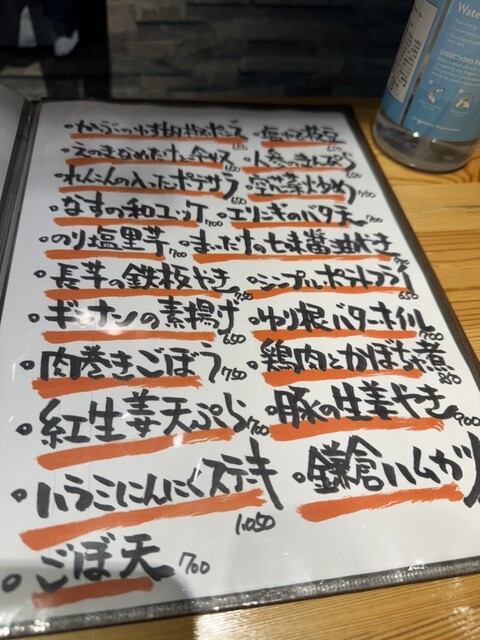 ・かぶのゆず柚 ・塩ゆで枝豆 650
・えのきなめたけ 650 ・人参のきんぴら 650
・れんこんの入ったポテサラ ・空芯菜炒め 750
・なすの和ユッケ 700 ・エリンギのバター 700
・のり塩里芋 700 ・まいたけの七味醤油やき
・長芋の鉄板やき ・シンプルポテトフライ 650
・ギンナンの素揚げ 650 ・ゆり根バターホイル 750
・肉巻きごぼう 750 ・鶏肉とかぼちゃ煮 850
・紅生姜天ぷら 700 ・豚の生姜やき 900
・ハラミにんにくステーキ 1,050 ・鎌倉ハムカツ
・ごぼ天 700
Wate
DIRECTIONS FO